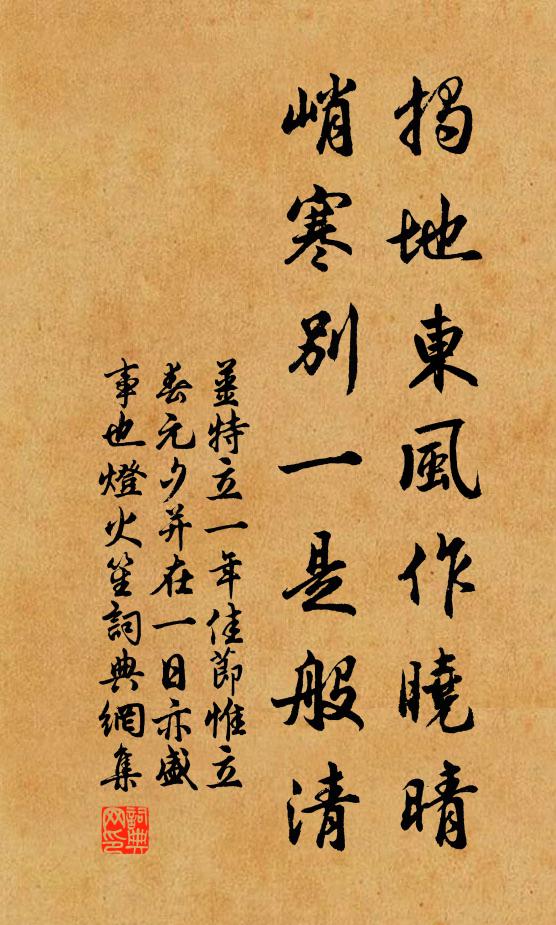 揭地東風作曉晴
峭寒別一是般清
姜特立一年佳節惟立
春元夕并在一日亦盛
事也燈火笙詞典網集
詞典网印